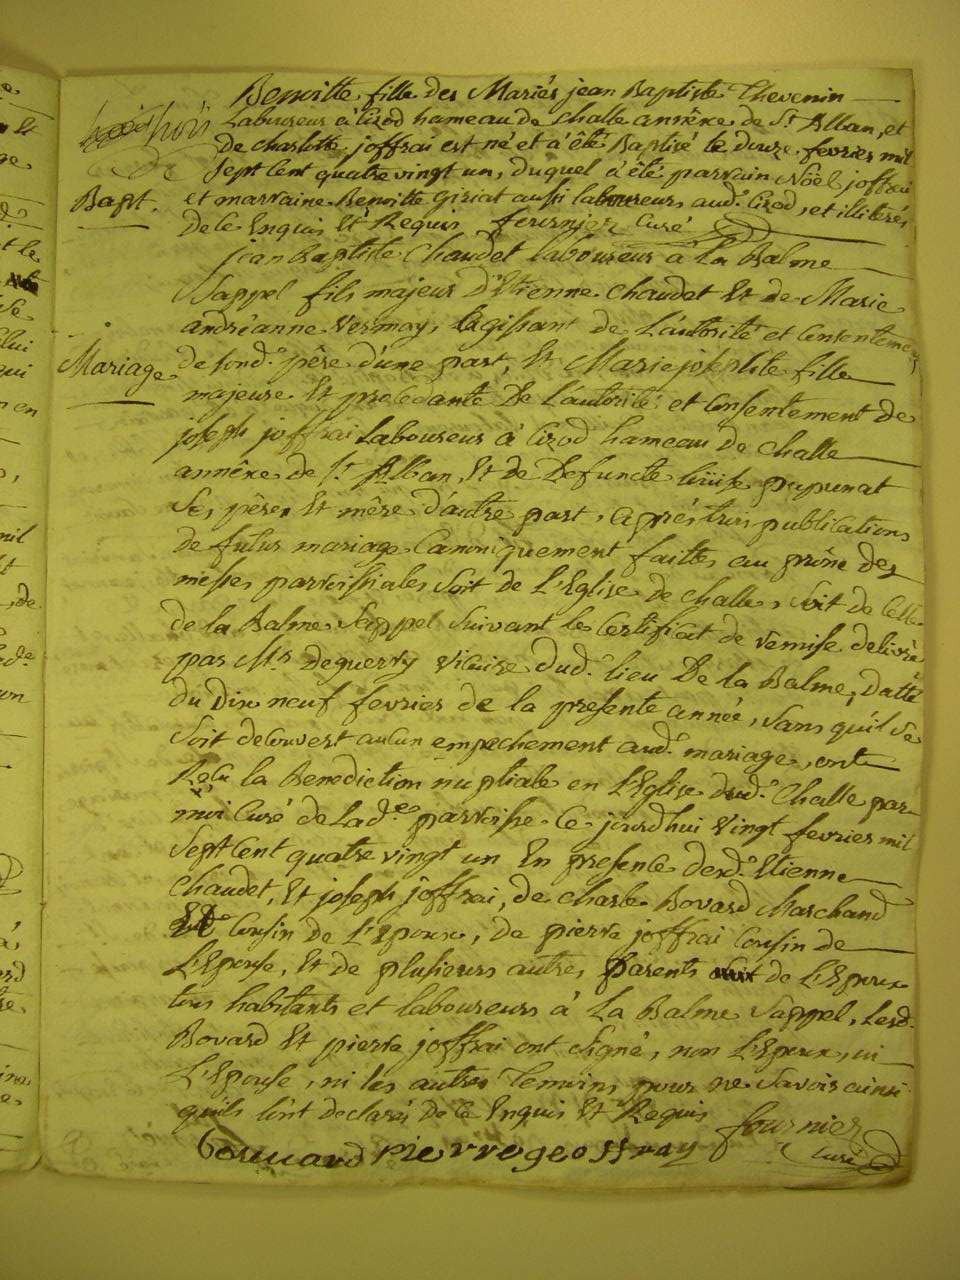 Benoitte fille des Mariés jean Baptiste Thevenin
Laboureur à Cizod hameau de Challe annêxe de St Alban, et
de charlotte joffrai est né et à été Baptisé le douze fevrier mil
Sept Cent quatre vingt un, duquel à été parrain Nôel joffrai
Bapt.
et marraine Benoitte Griziat aussi laboureurs aud. Cizod, et illiterés
de ce Enquis Et Requis fournier Curé
jean Baptiste Chaudet laboureur à La Balme
Sappel fils majeur D'Etienne Chaudet Et de Marie
andréanne Vesmay, agissant de L'autorité et Consentement
Mariage
de sond. père d'une part, Et Marie josephte fille
majeure Et procedante De L'autorité et Consentement de
joseph joffrai Laboureur à Cizod hameau de Challe
annêxe de St Alban, Et de Defuncte pupunat
Ses père Et mère d'autre part, après trois publications
de futur mariage Canoniquement faittes au prône des
messes parroissiales Soit de L'Eglise de Challe, Soit de Celle
de la Balme Sappel Suivant le Certificat de remise delivré
par Mr deguerry Vicaire dud. lieu De la Balme, Datté
du Dix neuf fevrier de la presente année, Sans qu'il Se
Soit decouvert aucun empechement aud. mariage, ont
Reçu la Benediction nuptiale en L'Eglise dud. Challe par
moi Curé de Lad.e parroisse Ce jourdhui Vingt fevrier mil
Sept Cent quatre vingt un En presence desd. Etienne
Chaudet, Et joseph joffrai, de Charle Bovard Marchand
Cousin de L'Epoux, de pierre joffrai Cousin de
L'Epouse, Et de plusieurs autres parents de L'Epoux
tous habitants et laboureurs à La Balme Sappel, Lesd.
Bovard Et pierre joffrai ont Signé, non L'Epoux, ni
L'Epouse, ni les autres Temoins pour ne Savoir ainsi
quils l'ont declarés de Ce Enquis Et Requis fournier
pierre geoffray Curé